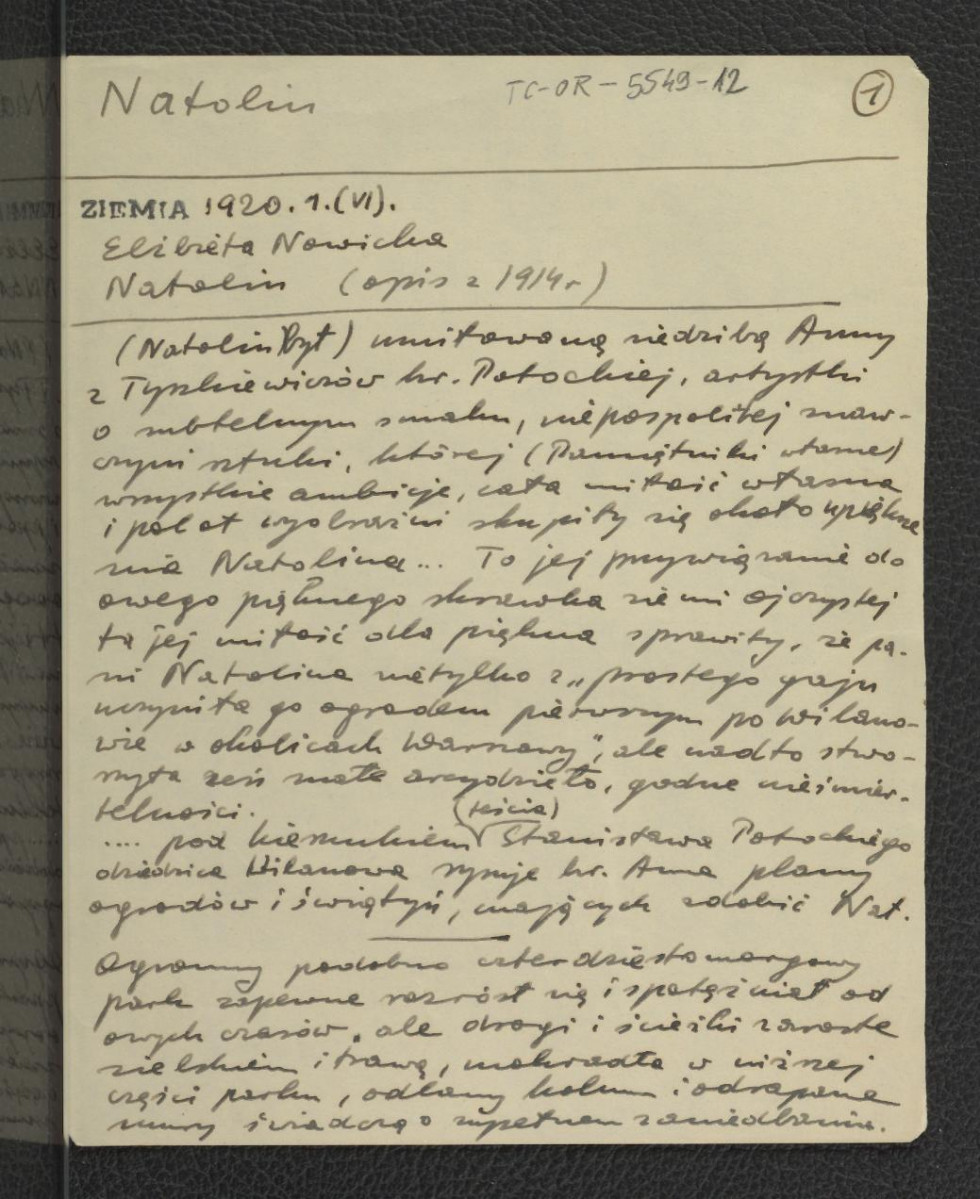 Natolin TC-OR-5549-12 1
ZIEMIA 1920.1.(VI).
Elżbieta Nowicka
Natolin (opis z 1914r)
(Natolin był) umiłowaną siedzibą Anny
z Tyszkiewiczów hr. Potockiej, artystki
o subtelnym smaku, niepospolitej znaw-
czyni sztuki, której (Pamiętniki własne)
wszystkie ambicje, cała miłość własna
i polot wyobraźni skupiły się około upiększe
nia Natolina... To jej przywiązanie do
owego pięknego skrawka ziemi ojczystej
ta jej miłość dla piękna sprawiły, że pa-
ni Natolina nietylko z „prostego gaju
uczyniła go ogrodem pierwszym po Wilano-
wie w okolicach Warszawy", ale nadto stwo-
rzyła zeń małe arcydzieło, godne nieśmier-
telności.
.... pod kierunkiem (teścia) Stanisława Potockiego
dziedzica Wilanowa rysuje hr. Anna plany
ogrodów i świątyń, mających zdobić Nat.
Ogromny podobno czterdziestomorgowy
park zapewne rozrósł się i spotężniał od
owych czasów, ale drogi i ścieżki zarosłe
zielskiem i trawą, mokradła w niższej
części parku, odłamy kolumn i odrapane
mury świadczą o zupełnem zaniedbaniu.